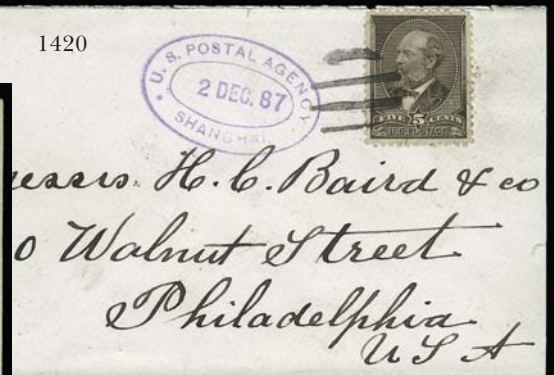 1420
U. S. POSTAL AGENCY
2 DEC. 87
SHANGHAI
FIVE 5 CENTS
U.S. POSTAGE
essrs. H. C. Baird & co
0 Walnut Street
Philadelphia
U S A